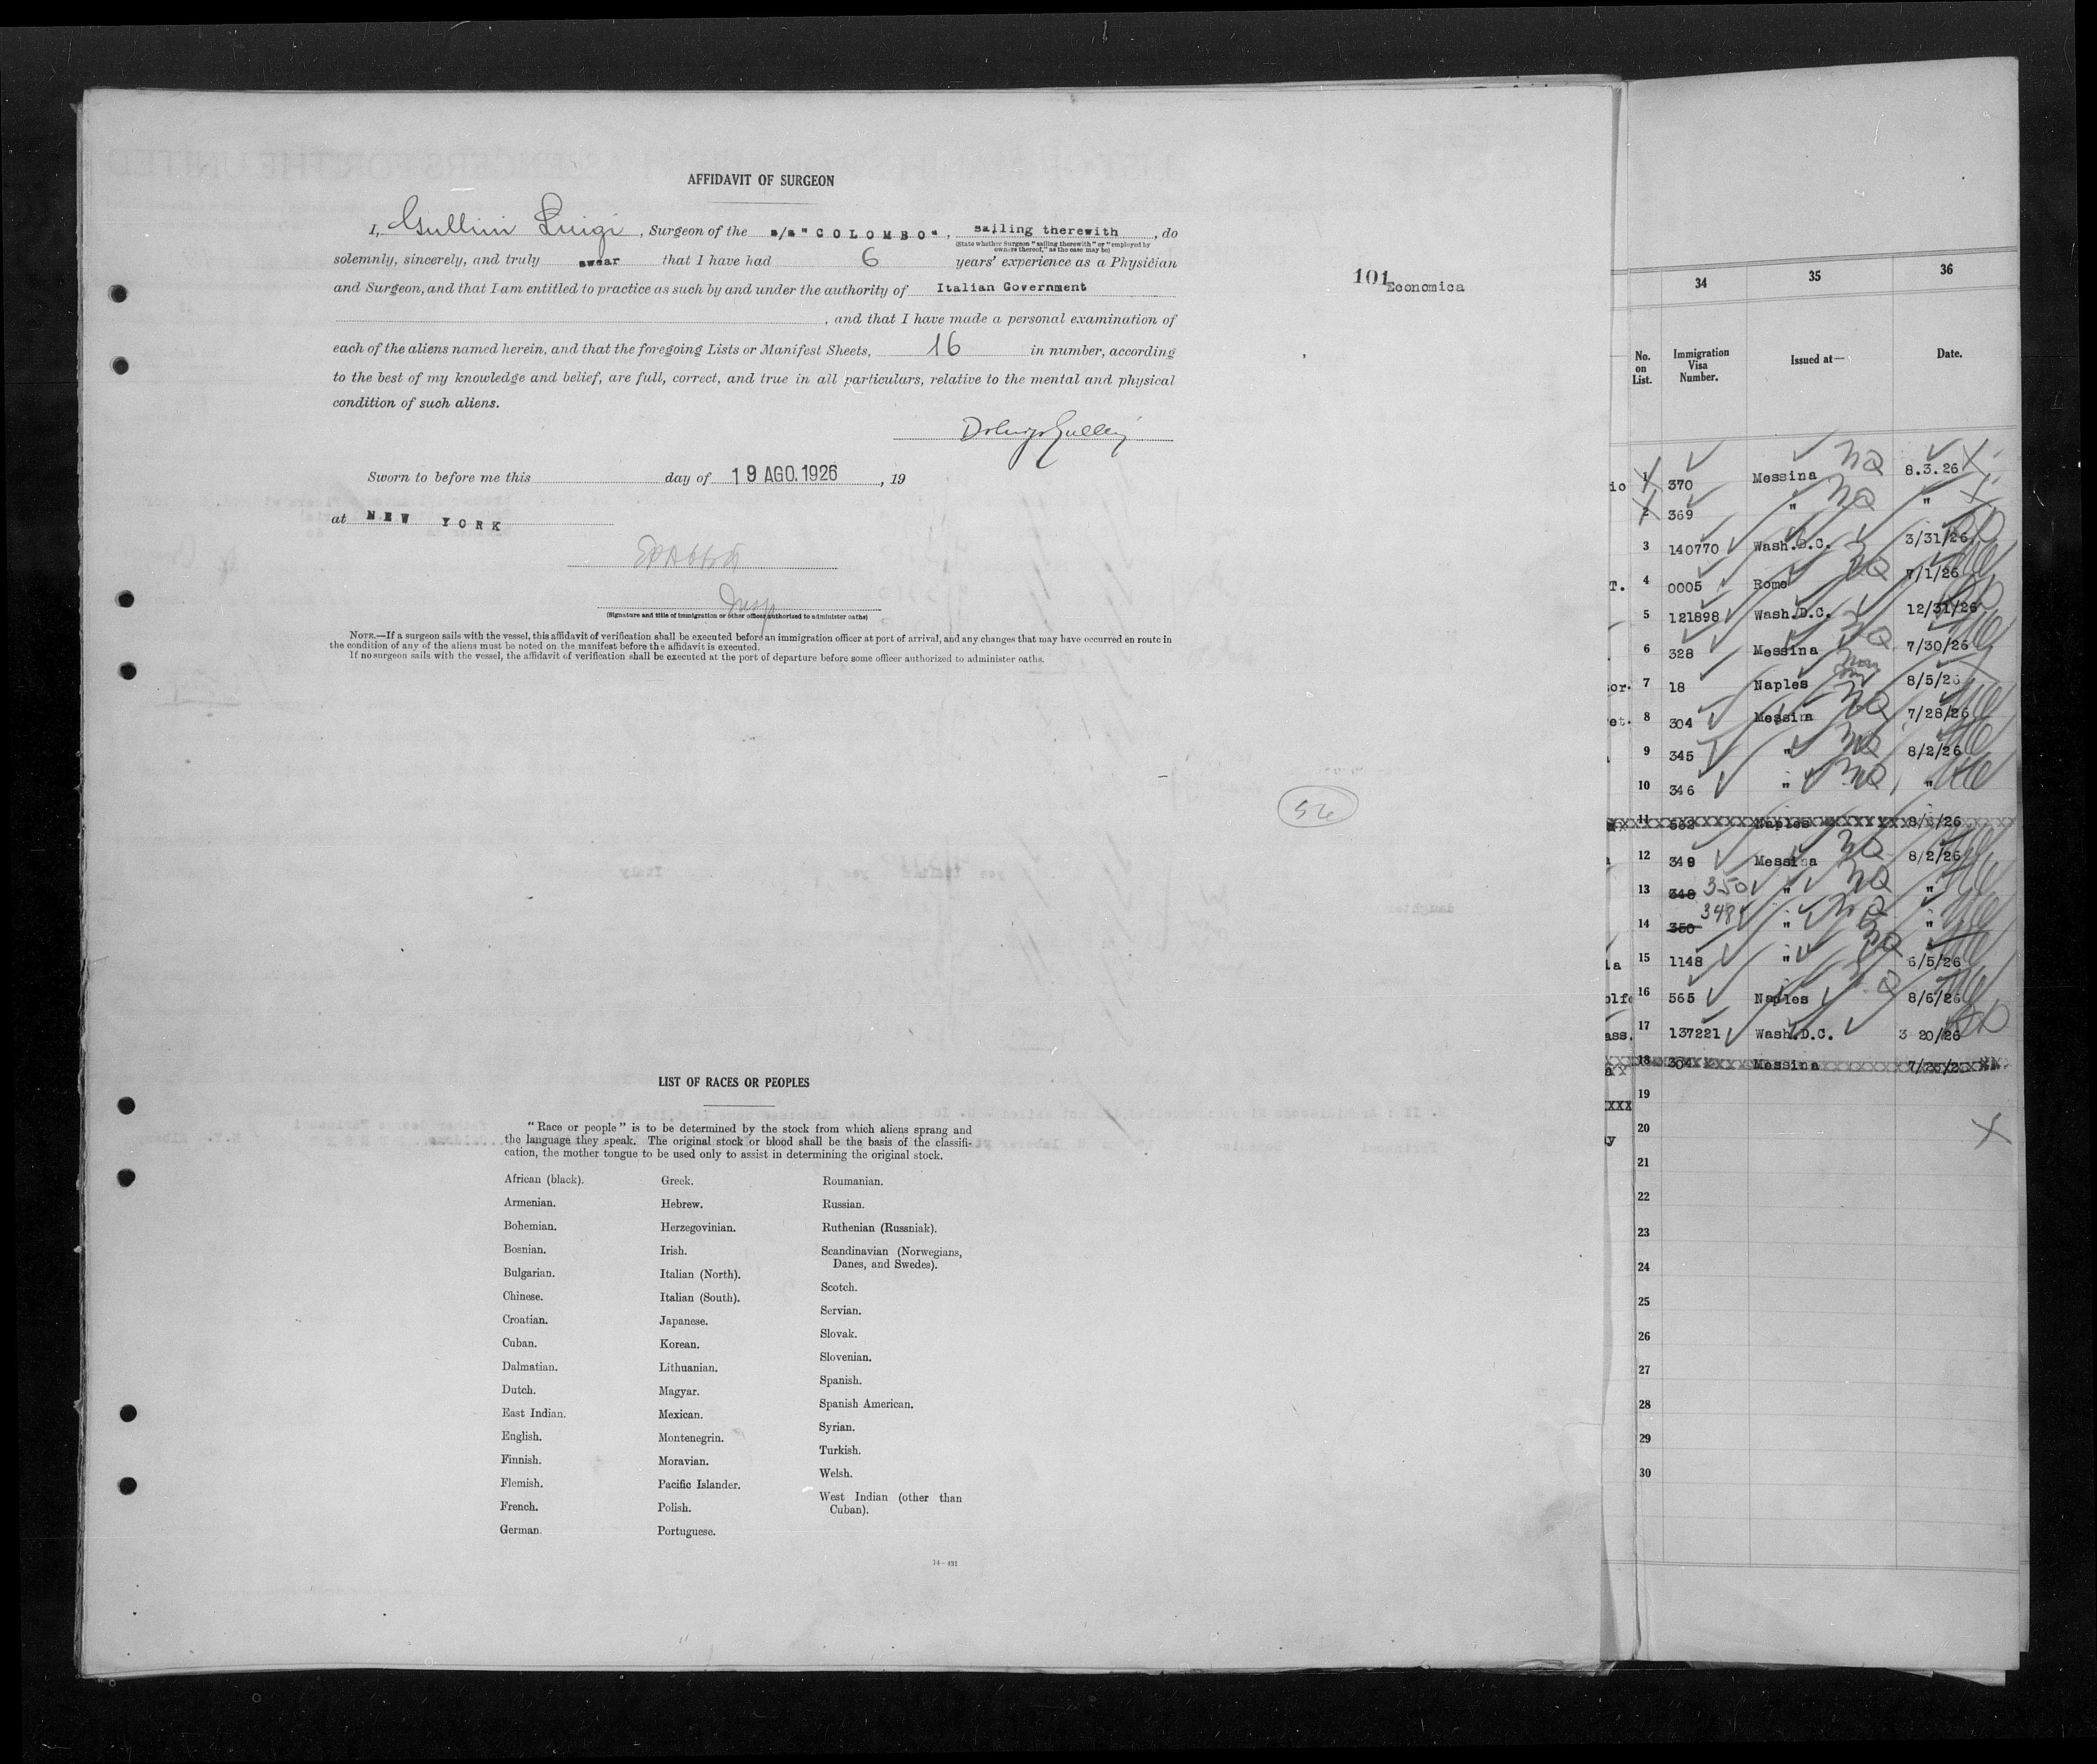 AFFIDAVIT OF SURGEON
I, Gullini Luigi, Surgeon of the s/s "COLOMBO", sailing therewith, do
(State whether Surgeon "sailing therewith" or "employed by
owners thereof," as the case may be)
solemnly, sincerely, and truly swear that I have had 6 years' experience as a Physician
and Surgeon, and that I am entitled to practice as such by and under the authority of Italian Government
, and that I have made a personal examination of
each of the aliens named herein, and that the foregoing Lists or Manifest Sheets, 16 in number, according
to the best of my knowledge and belief, are full, correct, and true in all particulars, relative to the mental and physical
condition of such aliens.
Sworn to before me this day of 19 AGO. 1926, 19
at NEW YORK
Insp
(Signature and title of immigration or other officer authorized to administer oaths)
NOTE.—If a surgeon sails with the vessel, this affidavit of verification shall be executed before an immigration officer at port of arrival, and any changes that may have occurred en route in
the condition of any of the aliens must be noted on the manifest before the affidavit is executed.
If no surgeon sails with the vessel, the affidavit of verification shall be executed at the port of departure before some officer authorized to administer oaths.
101 Economica
LIST OF RACES OR PEOPLES
"Race or people" is to be determined by the stock from which aliens sprang and
the language they speak. The original stock or blood shall be the basis of the classifi-
cation, the mother tongue to be used only to assist in determining the original stock.
African (black).
Armenian.
Bohemian.
Bosnian.
Bulgarian.
Chinese.
Croatian.
Cuban.
Dalmatian.
Dutch.
East Indian.
English.
Finnish.
Flemish.
French.
German.
Greek.
Hebrew.
Herzegovinian.
Irish.
Italian (North).
Italian (South).
Japanese.
Korean.
Lithuanian.
Magyar.
Mexican.
Montenegrin.
Moravian.
Pacific Islander.
Polish.
Portuguese.
Roumanian.
Russian.
Ruthenian (Russniak).
Scandinavian (Norwegians,
Danes, and Swedes).
Scotch.
Servian.
Slovak.
Slovenian.
Spanish.
Spanish American.
Syrian.
Turkish.
Welsh.
West Indian (other than
Cuban).
14—431
34 35 36
No. on List. Immigration Visa Number. Issued at— Date.
io 1 370 Messina NQ 8.3.26
2 369 " NQ "
3 140770 Wash.D.C. 3/31/26
T. 4 0005 Rome NQ 7/1/26
5 121898 Wash.D.C. 12/31/26
6 328 Messina 7/30/26
or. 7 18 Naples 8/5/26
et. 8 304 Messina NQ 7/28/26
9 345 " NQ 8/2/26
10 346 " NQ "
11 Naples 8/6/26
12 349 Messina NQ 8/2/26
13 348 350 " NQ "
14 350 348 " NQ "
la 15 1148 " NQ 6/5/26
olfe 16 565 Naples Q 8/6/26
ass. 17 137221 Wash.D.C. 3 20/26
18 304 Messina
19
20
y
21
22
23
24
25
26
27
28
29
30